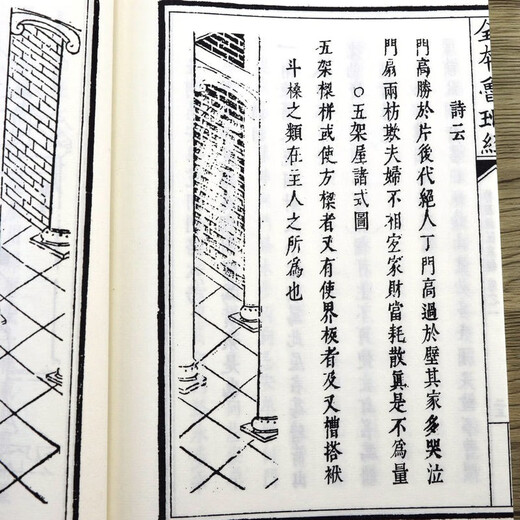 全本魯班經
詩云
門高勝於片後代絕人丁門高過於壁其家多哭泣
門扇兩枋欺夫婦不相宜家財當耗散真是不為量
○五架屋諸式圖
五架樑栟或使方樑者又有使界板者及又槽搭袱
斗榛之類在主人之所為也